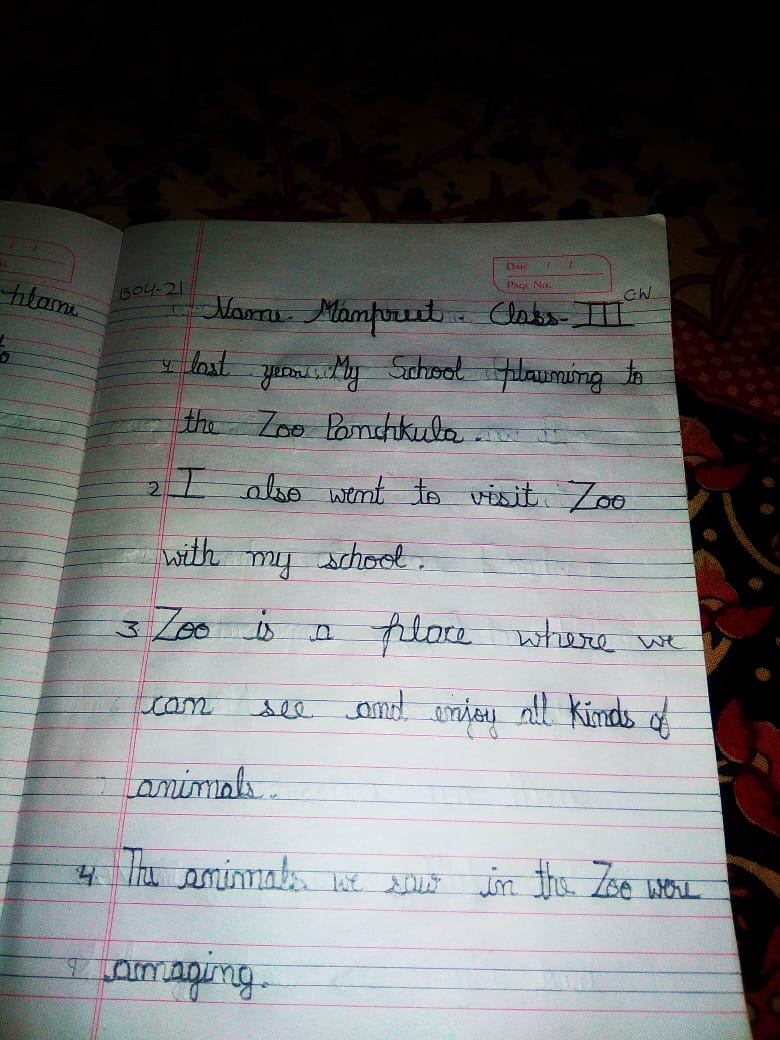 Date / /
Page No.
plane
1504-21
CW
Name- Manpreet - Class- III
1 last year. My School planning to
the Zoo Panchkula.
2 I also went to visit Zoo
with my school.
3 Zoo is a place where we
can see and enjoy all kinds of
animals.
4. The animals we saw in the Zoo were
amaging.